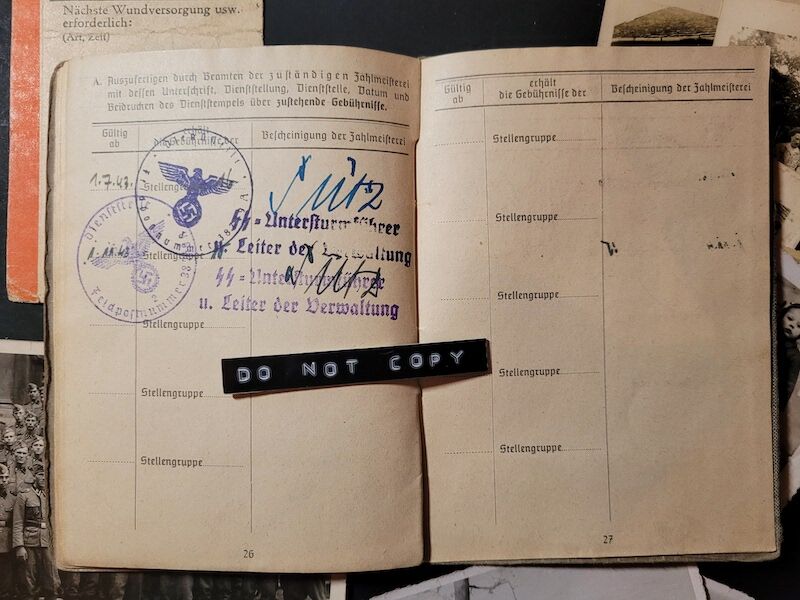 Nächste Wundversorgung usw.
erforderlich:
(Art, Zeit)
A. Auszufertigen durch Beamten der zuständigen Zahlmeisterei
mit dessen Unterschrift, Dienststellung, Dienststelle, Datum und
Beidrucken des Dienststempels über zustehende Gebührnisse.
Gültig ab
erhält die Gebührnisse der
Bescheinigung der Zahlmeisterei
1.7.43.
Stellengruppe
SS-Untersturmführer
u. Leiter der Verwaltung
Dienststelle
Feldpostnummer
Stellengruppe
SS-Untersturmführer
u. Leiter der Verwaltung
Stellengruppe
Stellengruppe
Stellengruppe
26
Gültig ab
erhält die Gebührnisse der
Bescheinigung der Zahlmeisterei
Stellengruppe
Stellengruppe
Stellengruppe
Stellengruppe
Stellengruppe
27
DO NOT COPY